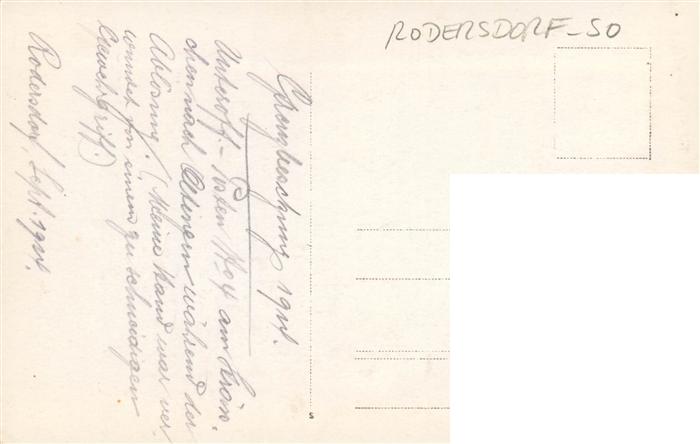 RODERSDORF-SO
Grenzbesetzung 1914.
Unteroff.-Posten No 4 am Kreuz.
chen nach während der
Ablösung! (Meine Hand war ver
wundet von einem zu schneidigen
Gewehrgriff.)
Rodersdorf, Sept. 1914.
S